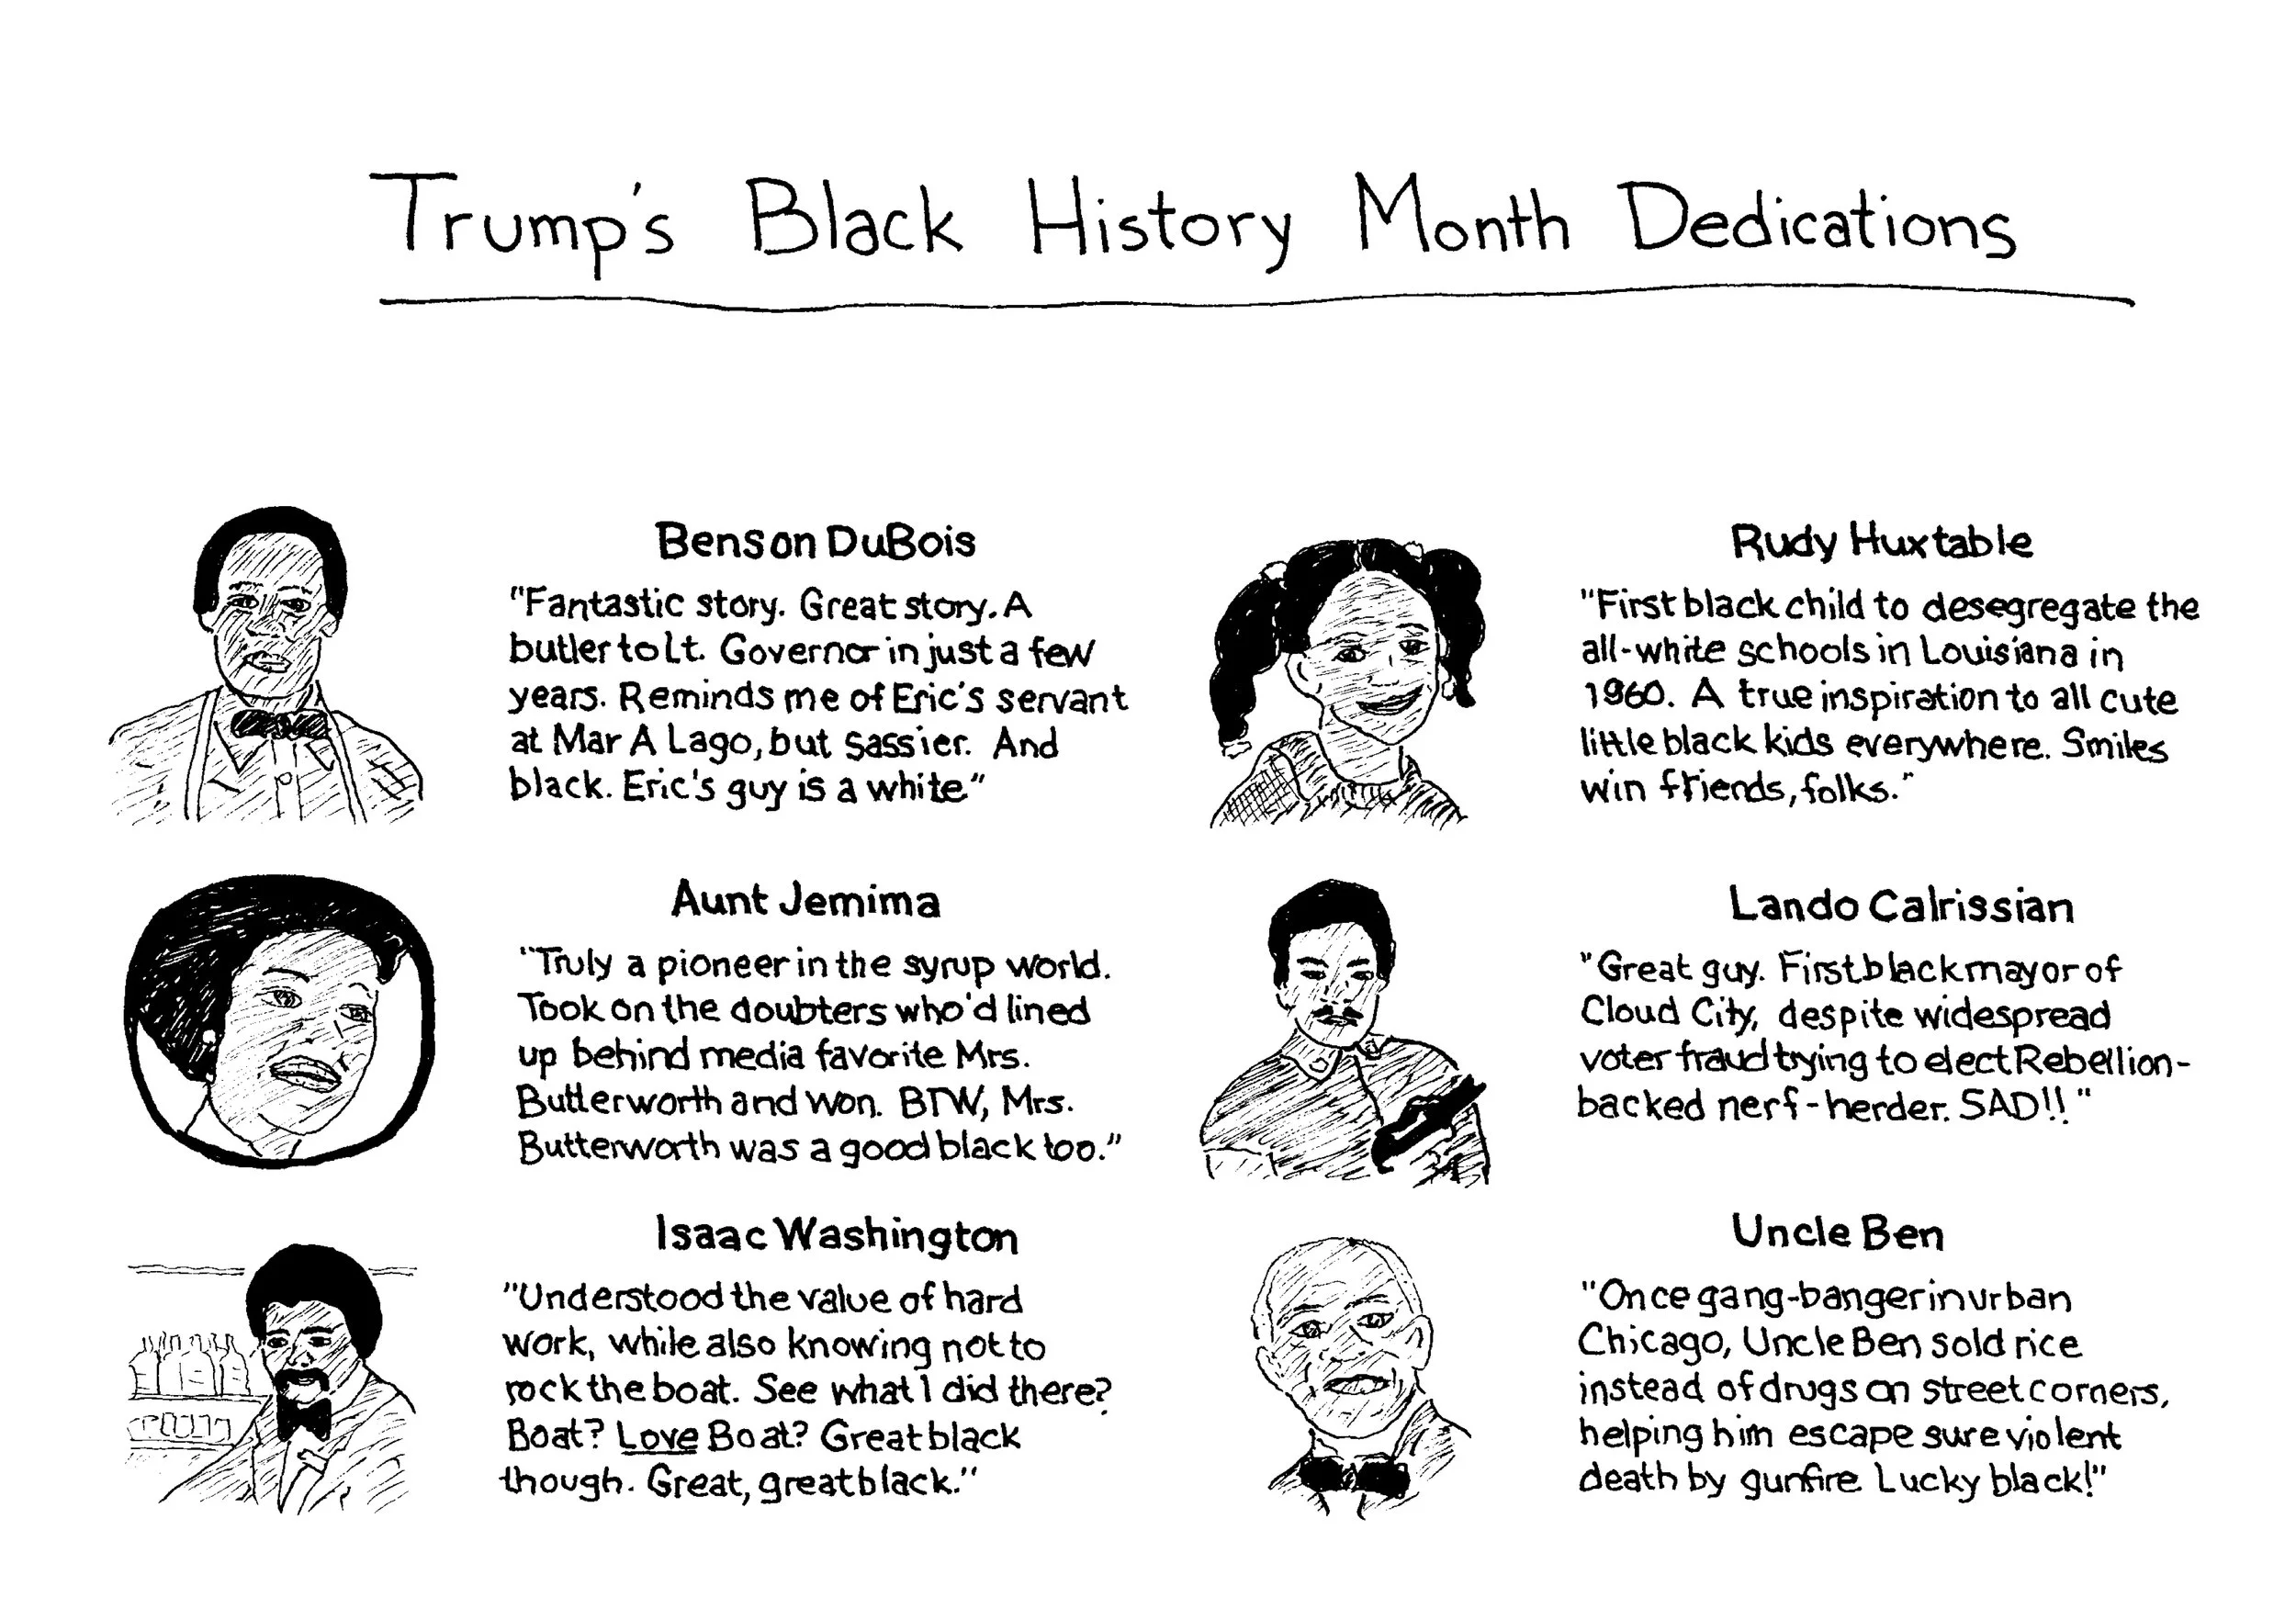 Trump's Black History Month Dedications
Benson DuBois
"Fantastic story. Great story. A
butler to Lt. Governor in just a few
years. Reminds me of Eric's servant
at Mar A Lago, but sassier. And
black. Eric's guy is a white."
Aunt Jemima
"Truly a pioneer in the syrup world.
Took on the doubters who'd lined
up behind media favorite Mrs.
Butterworth and won. BTW, Mrs.
Butterworth was a good black too."
Isaac Washington
"Understood the value of hard
work, while also knowing not to
rock the boat. See what I did there?
Boat? Love Boat? Great black
though. Great, great black."
Rudy Huxtable
"First black child to desegregate the
all-white schools in Louisiana in
1960. A true inspiration to all cute
little black kids everywhere. Smiles
win friends, folks."
Lando Calrissian
"Great guy. First black mayor of
Cloud City, despite widespread
voter fraud trying to elect Rebellion-
backed nerf-herder. SAD!!"
Uncle Ben
"Once gang-banger in urban
Chicago, Uncle Ben sold rice
instead of drugs on street corners,
helping him escape sure violent
death by gunfire. Lucky black!"